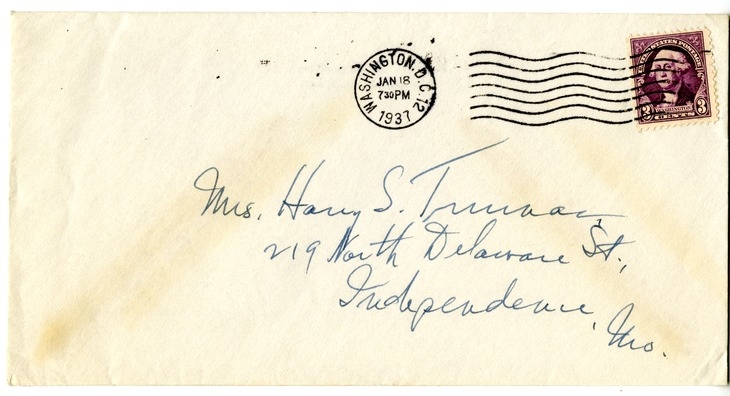 WASHINGTON, D.C. 12
JAN 18
7 30 PM
1937
UNITED STATES POSTAGE
3 WASHINGTON 3
CENTS
Mrs. Harry S. Truman
219 North Delaware St.,
Independence, Mo.